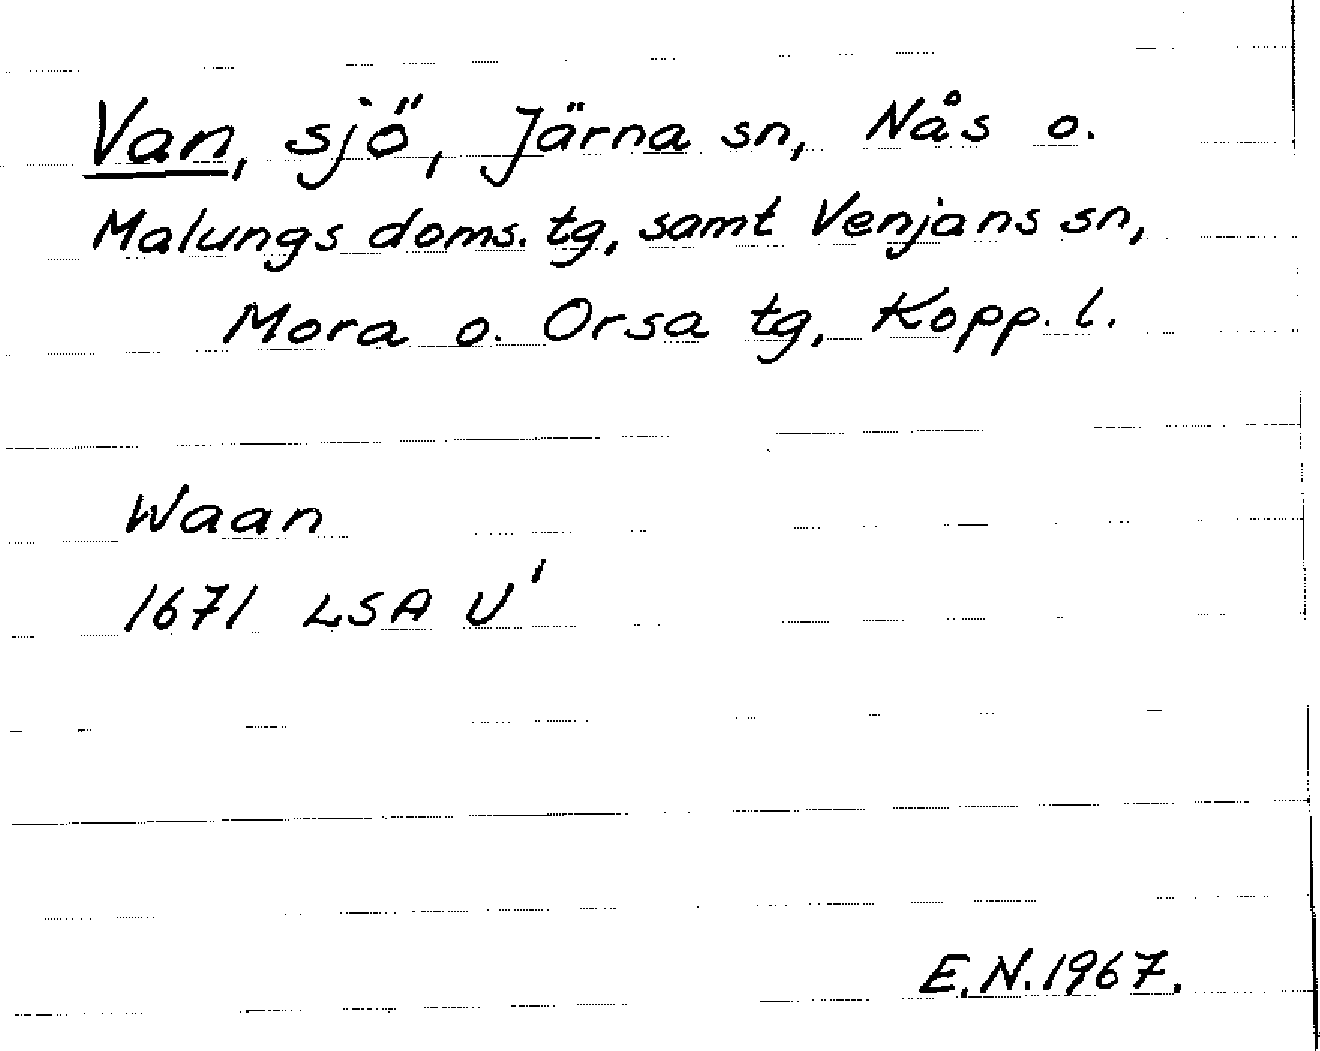 Van, sjö, Järna sn, Nås o.
Malungs doms. tg, samt Venjans sn,
Mora o. Orsa tg, Kopp. l.
Waan
1671 LSA U'
E.N.1967.